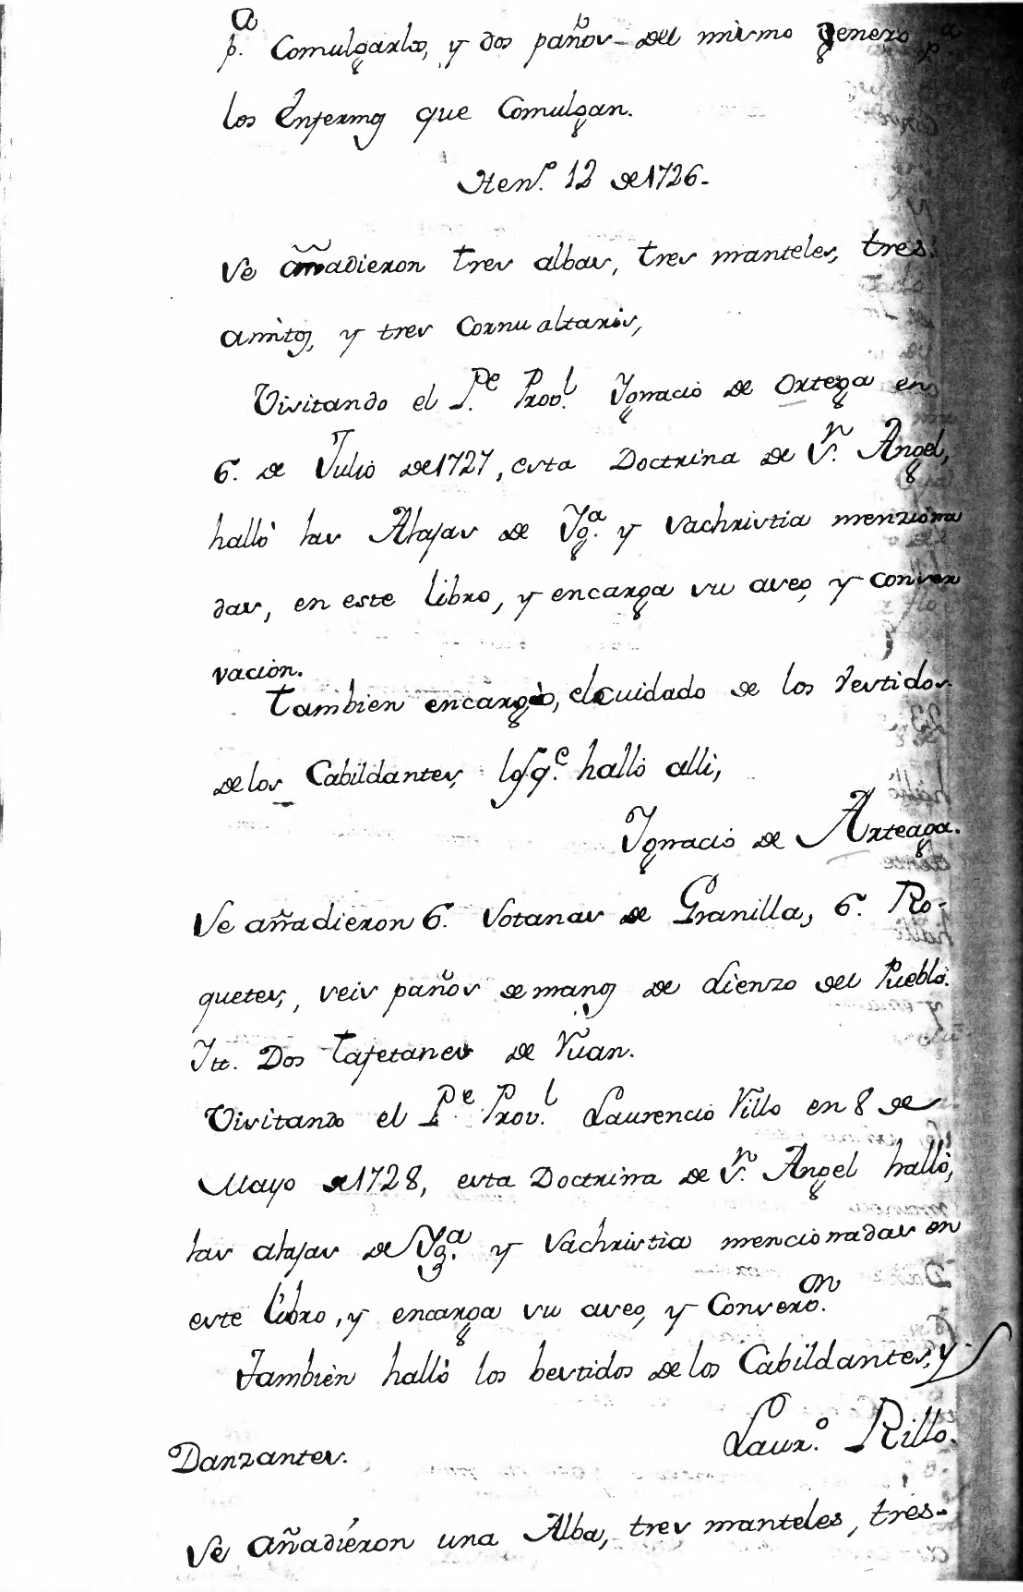 p.ᵃ Comulgarlos, y dos paños del mismo genero p.ᵃ
los Enfermos que Comulgan.
Hen.º 12 de 1726.
Se añadieron tres albas, tres manteles, tres
amitos, y tres Cornualtaris,
Visitando el P.ᵉ Prov.ˡ Ygnacio de Ortega en
6. de Julio de 1727, esta Doctrina de S.ⁿ Angel,
halló las Alajas de Yg.ᵃ y Sachristia menziona
das, en este libro, y encarga su aseo, y conser
vacion.
Tambien encargò, el cuidado de los Vestidos
de los Cabildantes, los q.ᵉ hallò alli,
Ygnacio de Arteaga.
Se añadieron 6. Sotanas de Granilla, 6. Ro-
quetes, seis paños de manos de Lienzo del Pueblo.
Itt. Dos Tafetanes de Yuan.
Visitando el P.ᵉ Prov.ˡ Laurencio Rillo en 8 de
Mayo de 1728, esta Doctrina de S.ⁿ Angel hallò,
las alajas de Yg.ᵃ y Sachristia mencionadas en
este libro, y encarga su aseo, y Conser.ᵒⁿ
Tambien hallò los bestidos de los Cabildantes, y
Danzantes.
Laur.º Rillo.
Se añadieron una Alba, tres manteles, tres-